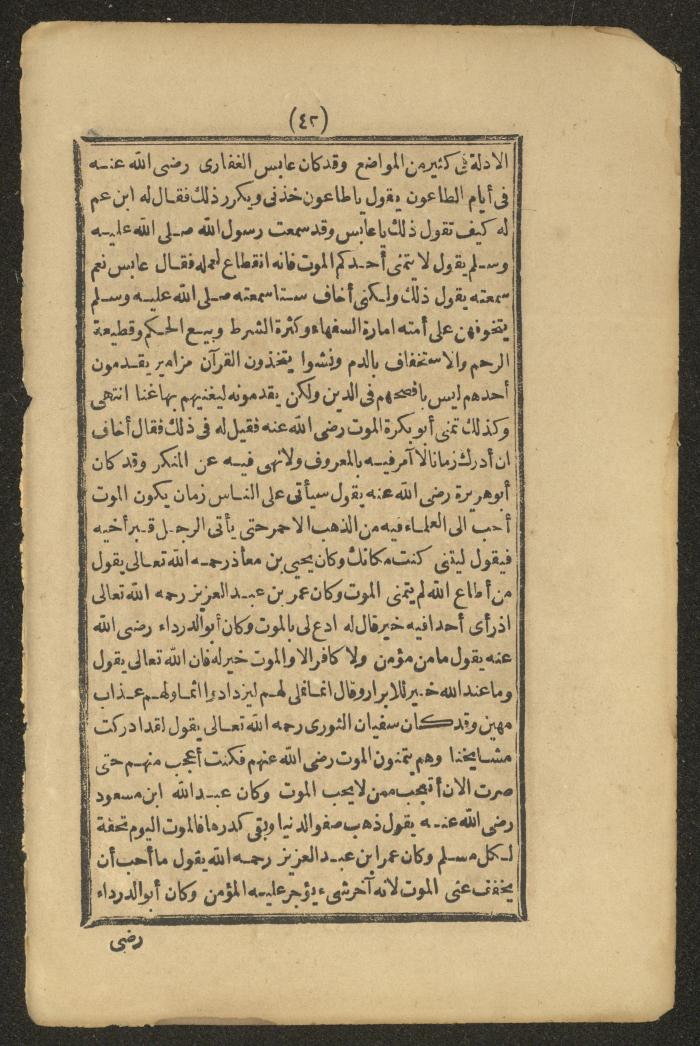 (٤٢)
الادلة فى كثير من المواضع وقد كان عابس الغفارى رضى الله عنه
فى أيام الطاعون يقول ياطاعون خذنى ويكرر ذلك فقال له ابن عم
له كيف تقول ذلك ياعابس وقد سمعت رسول الله صلى الله عليه
وسلم يقول لا يتمنى أحدكم الموت فانه انقطاع لعمله فقال عابس نعم
سمعته يقول ذلك ولكنى أخاف ستا سمعته صلى الله عليه وسلم
يتخوفهن على أمته امارة السفهاء وكثرة الشرط وبيع الحكم وقطيعة
الرحم والاستخفاف بالدم ونشوا يتخذون القرآن مزامير يقدمون
أحدهم ليس بافصحهم فى الدين ولكن يقدمونه ليغنيهم بها غنا انتهى
وكذلك تمنى أبو بكرة الموت رضى الله عنه فقيل له فى ذلك فقال أخاف
ان أدرك زمانا لا آمر فيه بالمعروف ولا نهى فيه عن المنكر وقد كان
أبو هريرة رضى الله عنه يقول سيأتى على الناس زمان يكون الموت
أحب الى العلماء فيه من الذهب الاحمر حتى يأتى الرجل قبر أخيه
فيقول ليتنى كنت مكانك وكان يحيى بن معاذ رحمه الله تعالى يقول
من أطاع الله لم يتمنى الموت وكان عمر بن عبد العزيز رحمه الله تعالى
اذ رأى أحدا فيه خير قال له ادع لى بالموت وكان أبو الدرداء رضى الله
عنه يقول ما من مؤمن ولا كافر الا والموت خير له فان الله تعالى يقول
وما عند الله خير للابرار وقال انما نملى لهم ليزدادوا اثما ولهم عذاب
مهين وقد كان سفيان الثورى رحمه الله تعالى يقول لقد ادركت
مشايخنا وهم يتمنون الموت رضى الله عنهم فكنت أعجب منهم حتى
صرت الان أتعجب ممن لا يحب الموت وكان عبد الله ابن مسعود
رضى الله عنه يقول ذهب صفو الدنيا وبقى كدرها فالموت اليوم تحفة
لكل مسلم وكان عمر ابن عبد العزيز رحمه الله يقول ما أحب أن
يخفف عنى الموت لانه آخر شىء يؤجر عليه المؤمن وكان أبو الدرداء
رضى